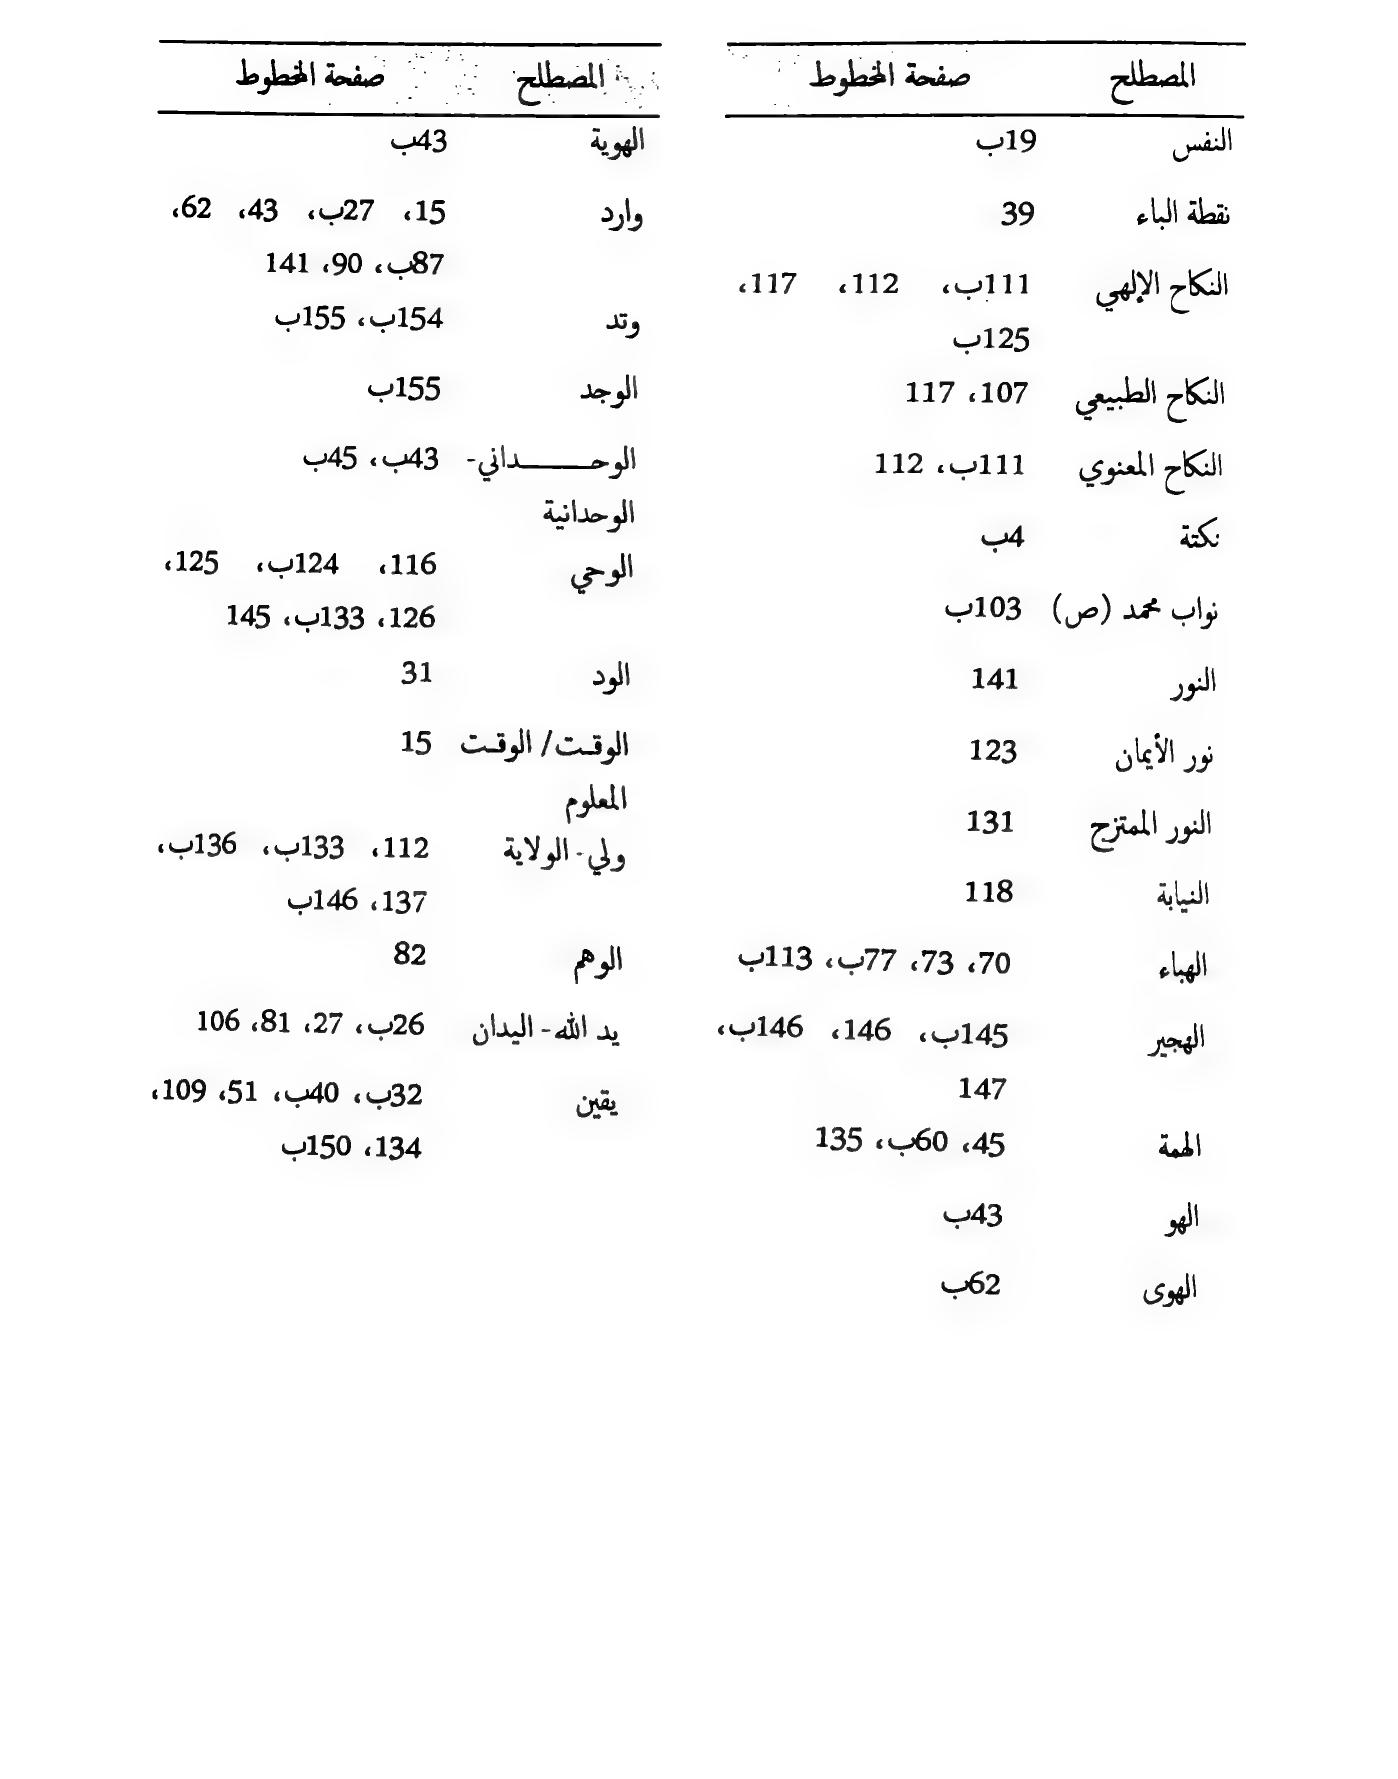 المصطلح صفحة المخطوط
النفس 19ب
نقطة الباء 39
النكاح الإلهي 111ب، 112، 117،
125ب
النكاح الطبيعي 107، 117
النكاح المعنوي 111ب، 112
نكتة 4ب
نواب محمد (ص) 103ب
النور 141
نور الأيمان 123
النور الممتزج 131
النيابة 118
الهباء 70، 73، 77ب، 113ب
الهجير 145ب، 146، 146ب،
147
الهمة 45، 60ب، 135
الهو 43ب
الهوى 62ب
المصطلح صفحة المخطوط
الهوية 43ب
وارد 15، 27ب، 43، 62،
87ب، 90، 141
وتد 154ب، 155ب
الوجد 155ب
الوحـــــداني- 43ب، 45ب
الوحدانية
الوحي 116، 124ب، 125،
126، 133ب، 145
الود 31
الوقت/ الوقت 15
المعلوم
ولي- الولاية 112، 133ب، 136ب،
137، 146ب
الوهم 82
يد الله- اليدان 26ب، 27، 81، 106
يقين 32ب، 40ب، 51، 109،
134، 150ب